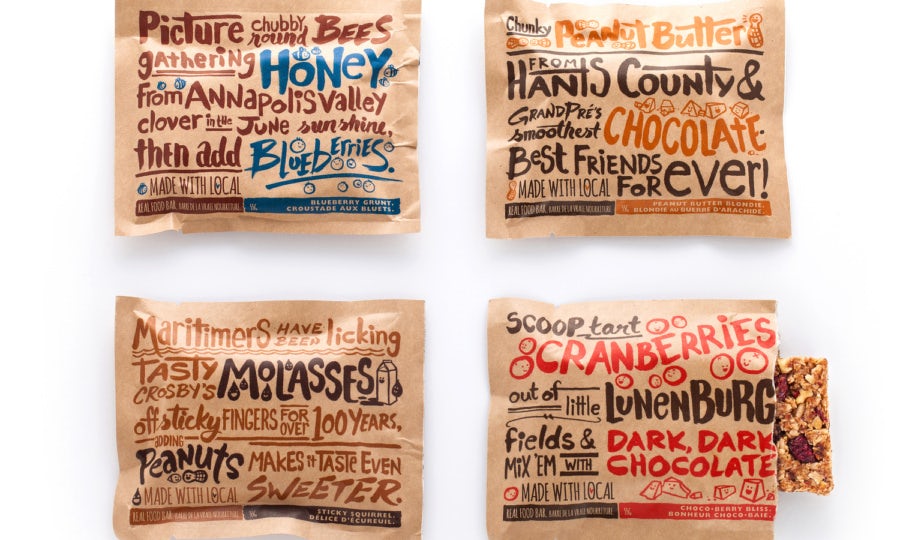 Picture chubby, round BEES
gathering HONEY
from ANNAPOLIS VALLEY
clover in the JUNE sunshine,
then add BLUEBERRIES.
MADE WITH LOCAL
REAL FOOD BAR. BARRE DE LA VRAIE NOURRITURE
BLUEBERRY GRUNT.
CROUSTADE AUX BLUETS.
Chunky Peanut Butter
FROM HANTS COUNTY &
GRAND PRÉ'S smoothest CHOCOLATE.
BEST FRIENDS FOR ever!
MADE WITH LOCAL
REAL FOOD BAR. BARRE DE LA VRAIE NOURRITURE
PEANUT BUTTER BLONDIE.
BLONDIE AU BUERRE D'ARACHIDE.
Maritimers HAVE BEEN licking
TASTY CROSBY'S MOLASSES
off sticky FINGERS FOR OVER 100 YEARS,
ADDING Peanuts MAKES it TASTE EVEN
SWEETER.
MADE WITH LOCAL
REAL FOOD BAR. BARRE DE LA VRAIE NOURRITURE
STICKY SQUIRREL.
DÉLICE D'ÉCUREUIL.
SCOOP tart
CRANBERRIES
out of little LUNENBURG
fields & DARK, DARK
MIX 'EM WITH CHOCOLATE
MADE WITH LOCAL
REAL FOOD BAR. BARRE DE LA VRAIE NOURRITURE
CHOCO-BERRY BLISS.
BONHEUR CHOCO-BAIE.